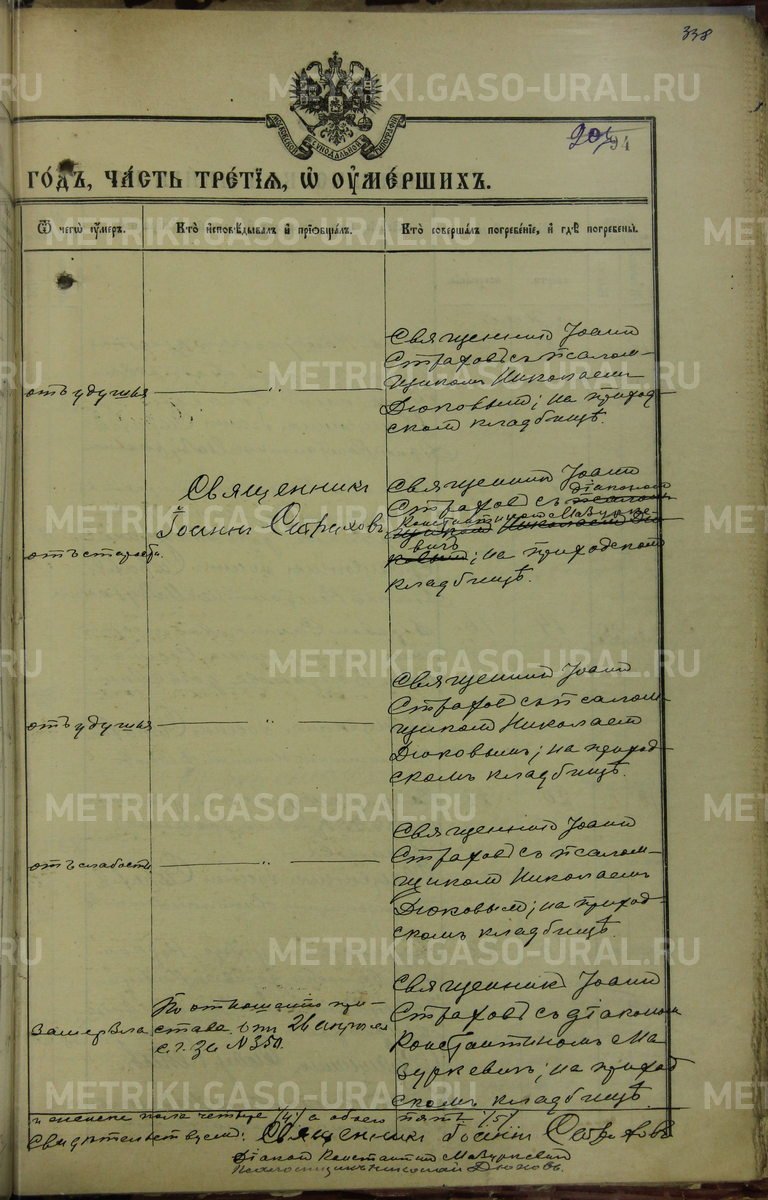 338
МОСКОВСКОЙ СУНОДАЛЬНОЙ ТИПОГРАФІИ
94
ГО́ДЪ, ЧА́СТЬ ТРЕ́ТІЯ, Ѽ ОУ҆МЕ́РШИХЪ.
Ѿ чегѡ̀ оу҆́меръ.
Кто̀ и҆сповѣ́дывалъ и҆ прїѡбща́лъ.
Кто̀ соверша́лъ погребе́нїе, и҆ гдѣ̀ погребены̀.
отъ удушья
— „ —
Священникъ Іоаннъ
Страховъ съ псалом-
щикомъ Николаемъ
Дюковымъ; на приход-
скомъ кладбищѣ.
отъ старости.
Священникъ
Іоаннъ Страховъ
Священникъ Іоаннъ
діакономъ
Страховъ съ псалом-
Константиномъ Мазурке-
щикомъ Николаемъ Дю-
вичъ
ковымъ; на приходскомъ
кладбищѣ.
отъ удушья
— „ —
Священникъ Іоаннъ
Страховъ съ псалом-
щикомъ Николаемъ
Дюковымъ; на приход-
скомъ кладбищѣ.
отъ слабости
— „ —
Священникъ Іоаннъ
Страховъ съ псалом-
щикомъ Николаемъ
Дюковымъ; на приход-
скомъ кладбищѣ.
замерзла
По отношенію при-
става отъ 26 апрѣля
с. г. за № 350.
Священникъ Іоаннъ
Страховъ съ діакономъ
Константиномъ Ма
зуркевичъ; на приход
скомъ кладбищѣ.
и женска пола четыре /4/ а обоего пять /5/
Свидѣтельствуемъ: Священникъ Іоаннъ Страховъ
Діаконъ Константинъ Мазуркевичъ
Псаломщикъ Николай Дюковъ.
METRIKI.GASO-URAL.RU